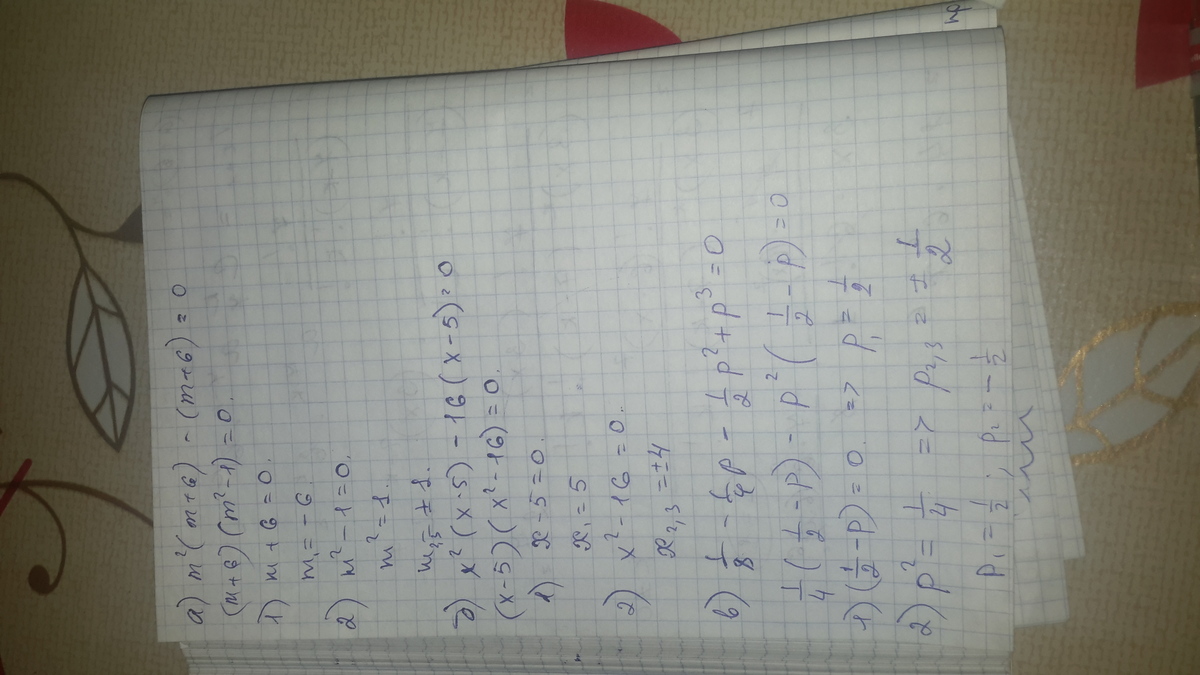 а) m²(m+6) - (m+6) = 0
(m+6)(m²-1) = 0.
1) m + 6 = 0.
m₁ = -6.
2) m² - 1 = 0.
m² = 1.
m₂,₃ = ± 1.
б) x²(x-5) - 16(x-5) = 0
(x-5)(x²-16) = 0.
1) x - 5 = 0.
x₁ = 5
2) x² - 16 = 0.
x₂,₃ = ±4
в) 1/8 - 1/4 p - 1/2 p² + p³ = 0
1/4 (1/2 - p) - p² (1/2 - p) = 0
1) (1/2 - p) = 0. => p₁ = 1/2
2) p² = 1/4 => p₂,₃ = ± 1/2
p₁ = 1/2 ; p₂ = - 1/2